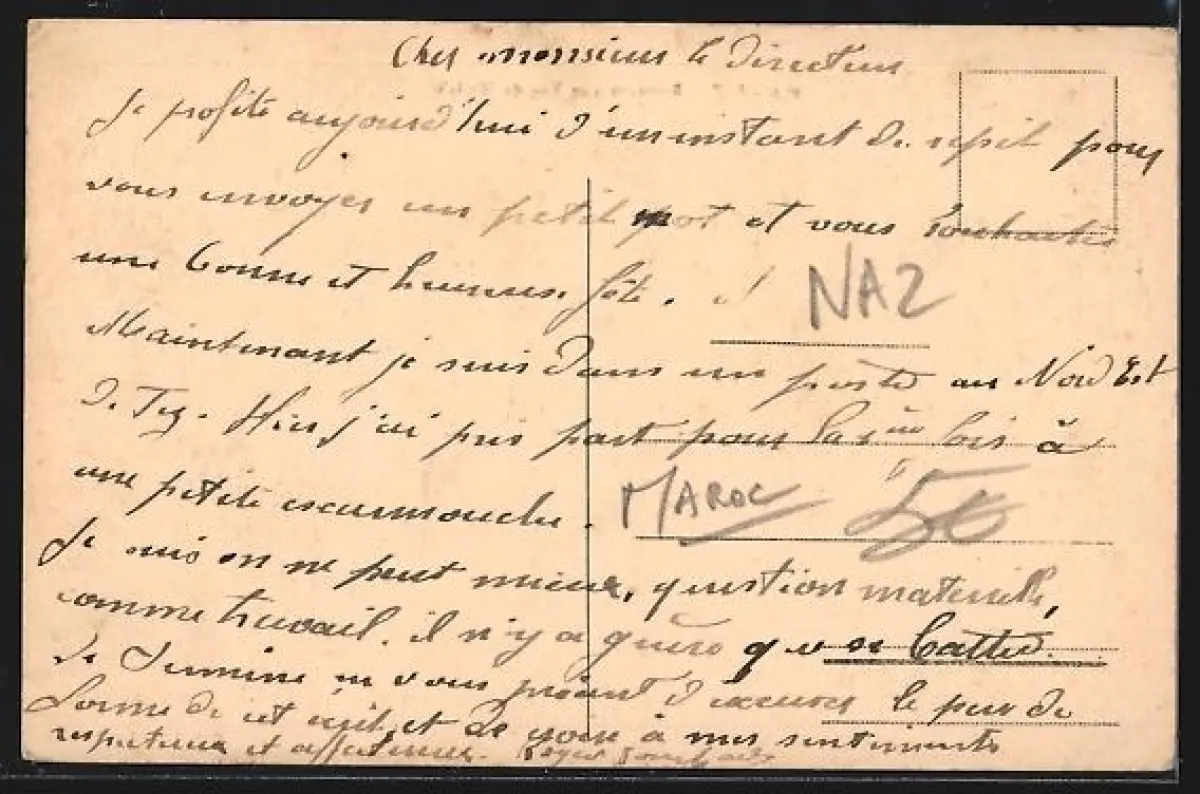 Cher monsieur le Directeur
Je profite aujourd'hui d'un instant de répit pour
vous envoyer un petit mot et vous souhaiter
une bonne et heureuse fête.
NAZ
Maintenant je suis dans un poste au Nord Est
de Hier j'ai pris part pour la fois à
une petite escarmouche.
MAROC
Je suis on ne peut mieux, question matérielle,
comme travail. il n'y a guère que se battre.
Je termine en vous priant d'excuser le peu de
forme de cet écrit, et de croire à mes sentiments
respectueux et affectueux. Roger